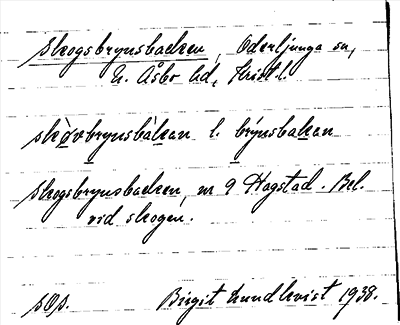 Skogsbrynsbacken, Oderljunga sn,
N. Åsbo hd, Krist. l.
skòvbrynsbàkan l. brýnsbakan
Skogsbrynsbacken, nr 9 Hagstad. Bel.
vid skogen.
sOp. Birgit Lundkvist 1938.